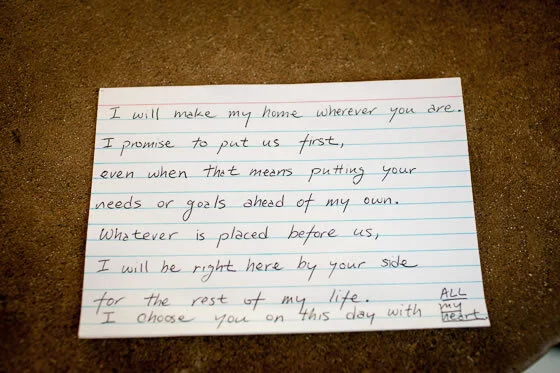 I will make my home wherever you are.
I promise to put us first,
even when that means putting your
needs or goals ahead of my own.
Whatever is placed before us,
I will be right here by your side
for the rest of my life.
I choose you on this day with ALL
my
heart.